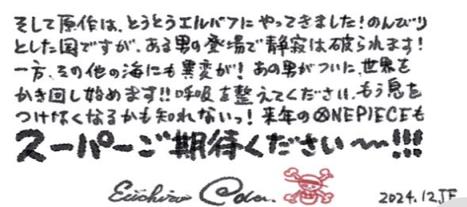 そして原作は、とうとうエルバフにやってきました!のんびり
とした国ですが、ある男の登場で静寂は破られます!
一方、その他の海にも異変が!あの男がついに、世界を
かき回し始めます!!呼吸を整えてください、もう息を
つけなくなるかも知れないっ!来年のONEPIECEも
スーパーご期待ください〜〜!!!
Eiichiro Oda.
2024.12.JF